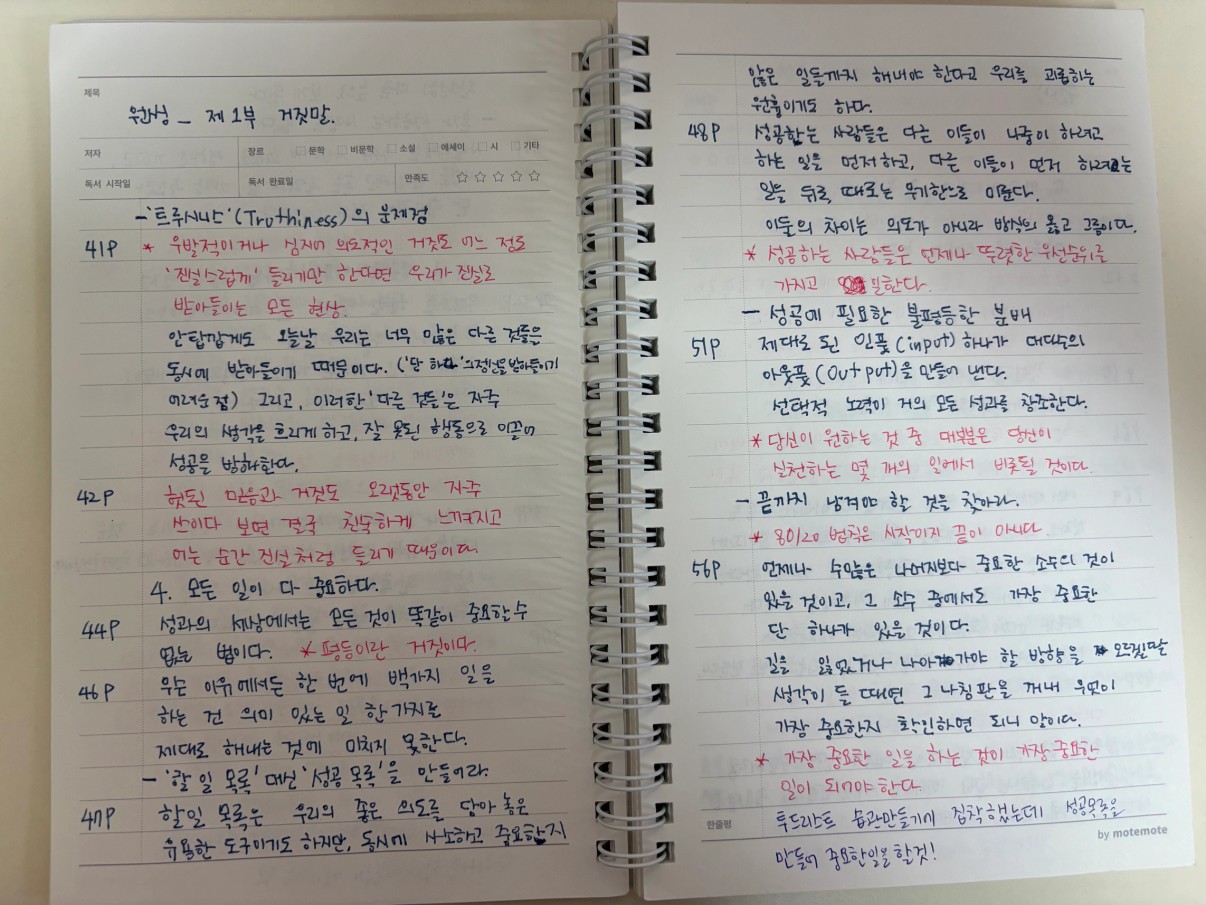 제목
원씽 – 제 1부 거짓말.
저자
장르 □ 문학 □ 비문학 □ 소설 □ 에세이 □ 시 □ 기타
독서 시작일
독서 완료일
만족도 ☆ ☆ ☆ ☆ ☆
- '트루시니스'(Truthiness)의 문제점
41P * 우발적이거나 심지어 의도적인 거짓도 어느 정도
'진실스럽게' 들리기만 한다면 우리가 진실로
받아들이는 모든 현상.
안탑깝게도 오늘날 우리는 너무 많은 다른 것들을
동시에 받아들이기 때문이다. ('단 하나'의 을 받아들이기
어려운 점) 그리고, 이러한 '다른 것들'은 자주
우리의 생각을 흐리게 하고, 잘 못된 행동으로 이끌어
성공을 방해한다.
42P 헛된 믿음과 거짓도 오랫동안 자주
쓰이다 보면 결국 친숙하게 느껴지고
어느 순간 진실처럼 들리기 때문이다.
4. 모든 일이 다 중요하다.
44P 성과의 세상에서는 모든 것이 똑같이 중요할 수
없는 법이다. * 평등이란 거짓이다.
46P 무슨 이유에서든 한 번에 백가지 일을
하는 건 의미 있는 일 한가지를
제대로 해내는 것에 미치지 못한다.
- '할 일 목록' 대신 '성공 목록'을 만들어라.
47P 할일 목록은 우리의 좋은 의도를 담아 놓은
유용한 도구이기도 하지만, 동시에 사소하고 중요한지
않은 일들까지 해내야 한다고 우리를 괴롭히는
원흉이기도 하다.
48P 성공하는 사람들은 다른 이들이 나중이 하려고
하는 일을 먼저하고, 다른 이들이 먼저 하려는
일을 뒤로, 때로는 무기한으로 미룬다.
이들의 차이는 의도가 아니라 방식의 옳고 그름이다.
* 성공하는 사람들은 언제나 뚜렷한 우선순위를
가지고 일한다.
- 성공에 필요한 불평등한 분배
51P 제대로 된 인풋(input) 하나가 대다수의
아웃풋(output)을 만들어 낸다.
선택적 노력이 거의 모든 성과를 창조한다.
* 당신이 원하는 것 중 대부분은 당신이
실천하는 몇 개의 일에서 비롯될 것이다.
- 끝까지 남겨야 할 것을 찾아라.
* 80/20 법칙은 시작이지 끝이 아니다.
56P 언제나 수많은 나머지보다 중요한 소수의 것이
있을 것이고, 그 소수 중에서도 가장 중요한
단 하나가 있을 것이다.
길을 잃었거나 나아가야 할 방향을 모르겠단
생각이 들 때면 그 나침판을 꺼내 무엇이
가장 중요한지 확인하면 되니 말이다.
* 가장 중요한 일을 하는 것이 가장 중요한
일이 되어야 한다.
한줄평 투두리스트 습관만들기에 집착했는데 성공목록을
by motemote
만들어 중요한일을 할것!